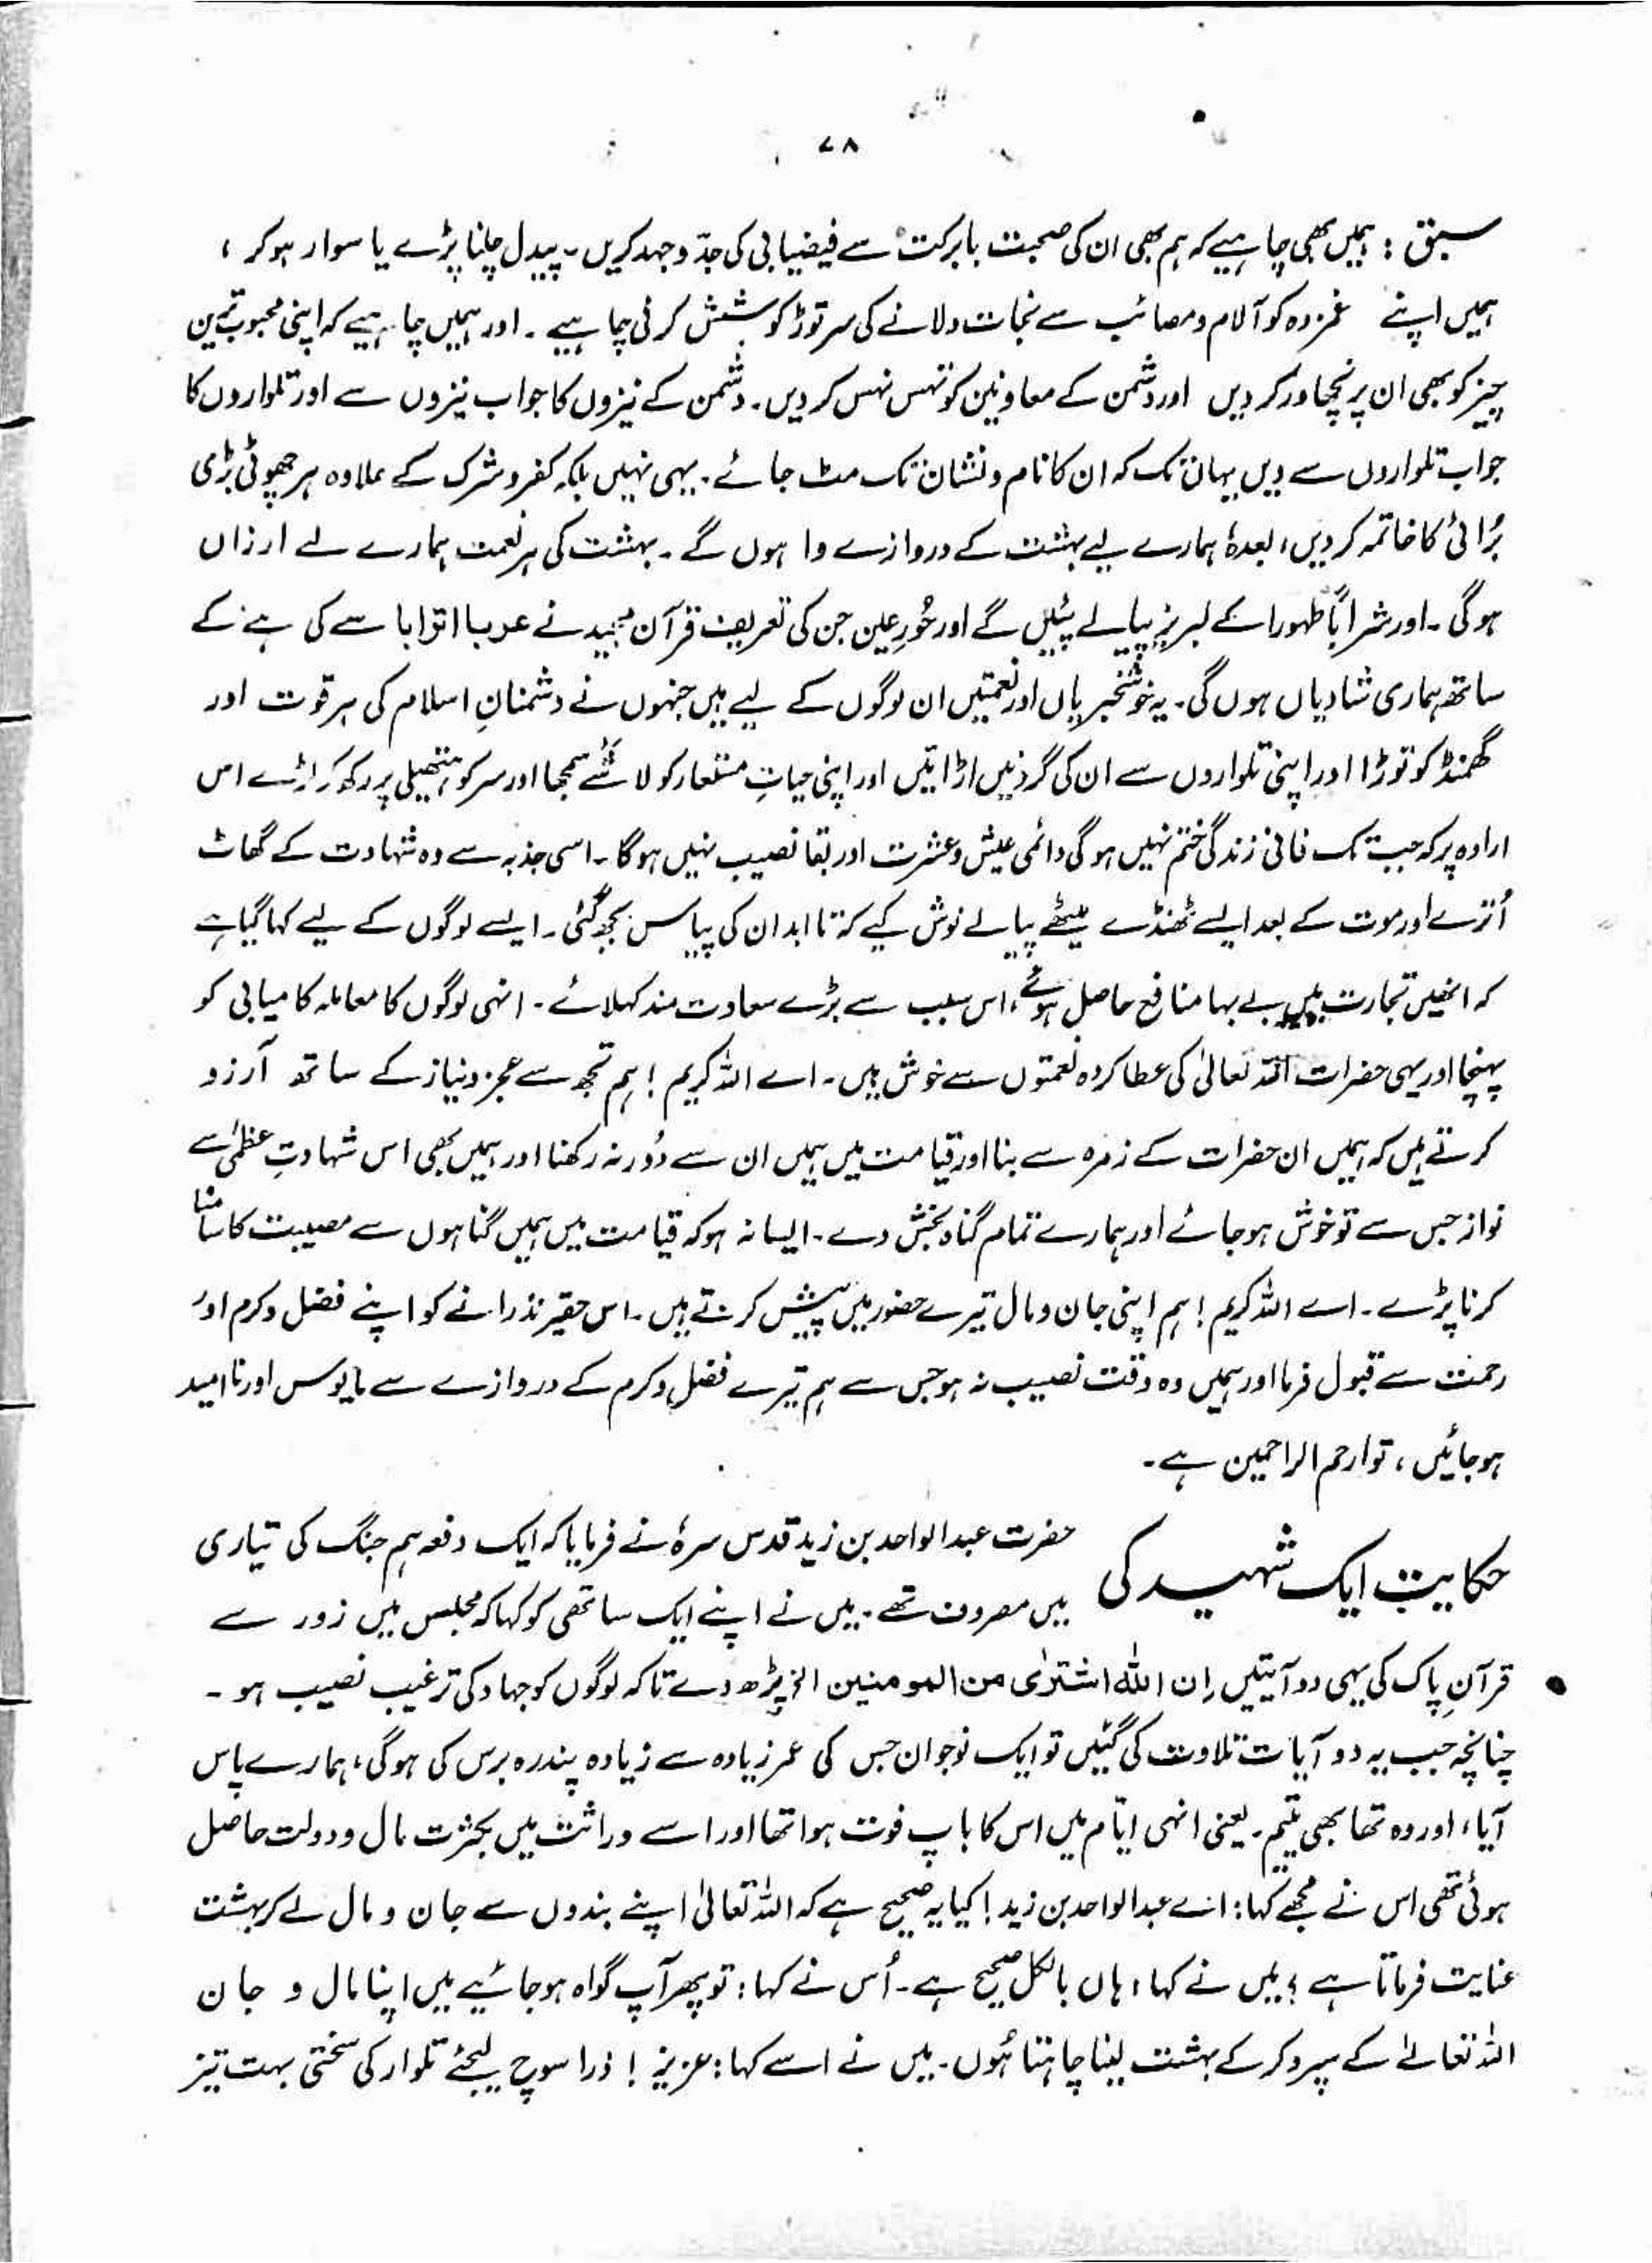 ۷۸
سبق : ہمیں بھی چاہیے کہ ہم بھی ان کی صحبت بابرکت سے فیضیابی کی جدّ وجہد کریں ۔ پیدل چلنا پڑے یا سوار ہو کر ،
ہمیں اپنے غمزدہ کو آلام و مصائب سے نجات دلانے کی سرتوڑ کوشش کرنی چاہیے ۔ اور ہمیں چاہیے کہ اپنی محبوب ترین
چیز کو بھی ان پر نچھاور کر دیں اور دشمن کے معاونین کو تہس نہس کر دیں ۔ دشمن کے نیزوں کا جواب نیزوں سے اور تلواروں کا
جواب تلواروں سے دیں یہاں تک کہ ان کا نام و نشان تک مٹ جائے ۔ یہی نہیں بلکہ کفر و شرک کے علاوہ ہر چھوٹی بڑی
بُرائی کا خاتمہ کر دیں ، بعدہٗ ہمارے لیے بہشت کے دروازے وا ہوں گے ۔ بہشت کی ہر نعمت ہمارے لے ارزاں
ہو گی ۔ اور شراباً طہورا کے لبریز پیالے پئیں گے اور حُورِ عین جن کی تعریف قرآن مجید نے عربا اترابا سے کی ہے کے
ساتھ ہماری شادیاں ہوں گی ۔ یہ خوشخبریاں اور نعمتیں ان لوگوں کے لیے ہیں جنہوں نے دشمنانِ اسلام کی ہر قوت اور
گھمنڈ کو توڑا اور اپنی تلواروں سے ان کی گردنیں اڑائیں اور اپنی حیاتِ مستعار کو لاشئے سمجھا اور سر کو ہتھیلی پر رکھ کر لڑے اس
ارادہ پر کہ جب تک فانی زندگی ختم نہیں ہو گی دائمی عیش و عشرت اور بقا نصیب نہیں ہو گا ۔ اسی جذبہ سے وہ شہادت کے گھاٹ
اُترے اور موت کے بعد ایسے ٹھنڈے میٹھے پیالے نوش کیے کہ تا ابد ان کی پیاس بجھ گئی ۔ ایسے لوگوں کے لیے کہا گیا ہے
کہ انھیں تجارت میں بے بہا منافع حاصل ہوئے ، اس سبب سے بڑے سعادت مند کہلائے ۔ انہی لوگوں کا معاملہ کامیابی کو
پہنچا اور یہی حضرات اللہ تعالیٰ کی عطا کردہ نعمتوں سے خوش ہیں ۔ اے اللہ کریم ! ہم تجھ سے عجز و نیاز کے ساتھ آرزو
کرتے ہیں کہ ہمیں ان حضرات کے زمرہ سے بنا اور قیامت میں ہمیں ان سے دُور نہ رکھنا اور ہمیں بھی اس شہادتِ عظمیٰ سے
نواز جس سے تو خوش ہو جائے اور ہمارے تمام گناہ بخش دے ۔ ایسا نہ ہو کہ قیامت میں ہمیں گناہوں سے مصیبت کا سامنا
کرنا پڑے ۔ اے اللہ کریم ! ہم اپنی جان و مال تیرے حضور میں پیش کرتے ہیں ۔ اس حقیر نذرانے کو اپنے فضل و کرم اور
رحمت سے قبول فرما اور ہمیں وہ وقت نصیب نہ ہو جس سے ہم تیرے فضل و کرم کے دروازے سے مایوس اور نا امید
ہو جائیں ، تو ارحم الراحمین ہے ۔
حکایت ایک شہید کی
حضرت عبدالواحد بن زید قدس سرہٗ نے فرمایا کہ ایک دفعہ ہم جنگ کی تیاری
میں مصروف تھے ۔ میں نے اپنے ایک ساتھی کو کہا کہ مجلس میں زور سے
قرآنِ پاک کی یہی دو آیتیں اِن اللہ اشتریٰ من المومنین الخ پڑھ دے تاکہ لوگوں کو جہاد کی ترغیب نصیب ہو ۔
چنانچہ جب یہ دو آیات تلاوت کی گئیں تو ایک نوجوان جس کی عمر زیادہ سے زیادہ پندرہ برس کی ہو گی ، ہمارے پاس
آیا ، اور وہ تھا بھی یتیم ۔ یعنی انہی ایّام میں اس کا باپ فوت ہوا تھا اور اسے وراثت میں بکثرت مال و دولت حاصل
ہوئی تھی اس نے مجھے کہا : اے عبدالواحد بن زید ! کیا یہ صحیح ہے کہ اللہ تعالیٰ اپنے بندوں سے جان و مال لے کر بہشت
عنایت فرماتا ہے ؟ میں نے کہا ، ہاں بالکل صحیح ہے ۔ اُس نے کہا : تو پھر آپ گواہ ہو جائیے میں اپنا مال و جان
اللہ تعالےٰ کے سپرد کر کے بہشت لینا چاہتا ہُوں ۔ میں نے اسے کہا : عزیز ! ذرا سوچ لیجئے تلوار کی سختی بہت تیز